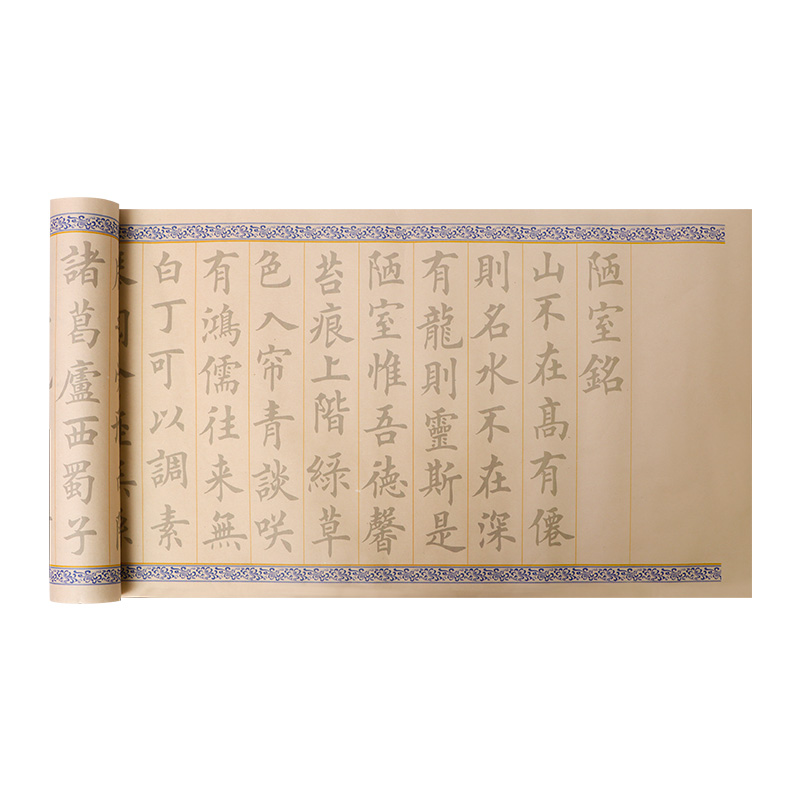 陋室銘
山不在髙有僊
則名水不在深
有龍則靈斯是
陋室惟吾德馨
苔痕上階綠草
色入帘青談咲
有鴻儒往来無
白丁可以調素
諸葛廬西蜀子